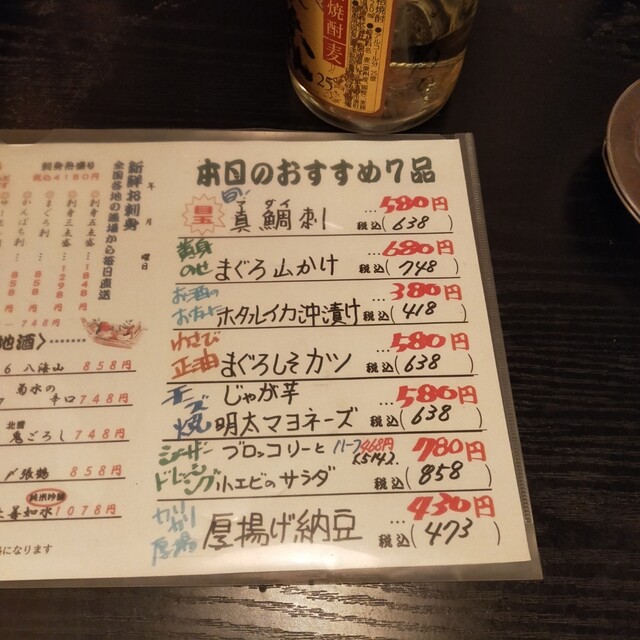 焼酎 麦
25
本日のおすすめ7品
目玉 旬!! マダイ 真鯛刺 …580円
税込(638)
黄身のせ まぐろ山かけ …680円
税込(748)
お酒のおともに ホタルイカ沖漬け …380円
税込(418)
わさび正油 まぐろしそカツ …580円
税込(638)
チーズ焼 じゃが芋明太マヨネーズ …580円
税込(638)
シーザードレッシング ブロッコリーと小エビのサラダ 780円
ハーフ468円
税込(858)
カリカリ厚揚 厚揚げ納豆 …430円
税込(473)
新鮮お刺身
全国各地の漁場から毎日直送
年 月 曜日
刺身五点盛 … 1848円
刺身三点盛 … 1298円
まぐろ刺 … 858円
かんぱち刺 … 858円
刺身舟盛り
税込4180円
748円
地酒〉……
八海山 858円
菊水の辛口 748円
北雪
鬼ごろし 748円
〆張鶴 858円
純米吟醸
上善如水 1078円
になります